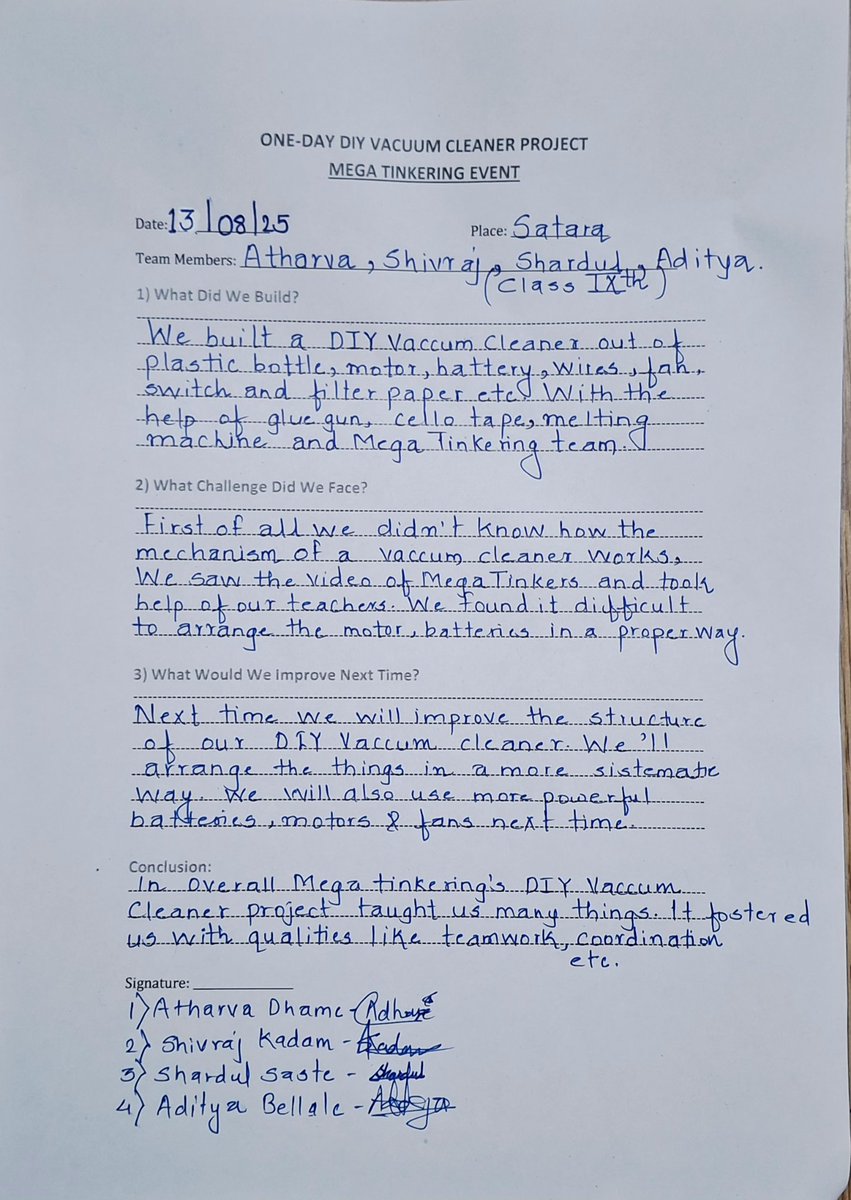 ONE-DAY DIY VACUUM CLEANER PROJECT
MEGA TINKERING EVENT
Date: 13/08/25 Place: Satara
Team Members: Atharva, Shivraj, Shardul, Aditya.
(Class IXth)
1) What Did We Build?
We built a DIY Vaccum Cleaner out of
plastic bottle, motor, battery, wires, fan,
switch and filter paper etc. With the
help of glue gun, cello tape, melting
machine and Mega Tinkering team.
2) What Challenge Did We Face?
First of all we didn't know how the
mechanism of a vaccum cleaner works.
We saw the video of Mega Tinkers and took
help of our teachers. We found it difficult
to arrange the motor, batteries in a proper way.
3) What Would We Improve Next Time?
Next time we will improve the structure
of our DIY Vaccum cleaner. We'll
arrange the things in a more sistematic
way. We will also use more powerful
batteries, motors & fans next time.
Conclusion:
In overall Mega tinkering's DIY Vaccum
Cleaner project taught us many things. It fostered
us with qualities like teamwork, coordination
etc.
Signature:
1) Atharva Dhame -
2) Shivraj Kadam - Kadam
3) Shardul Saste - Shardul
4) Aditya Bellale -